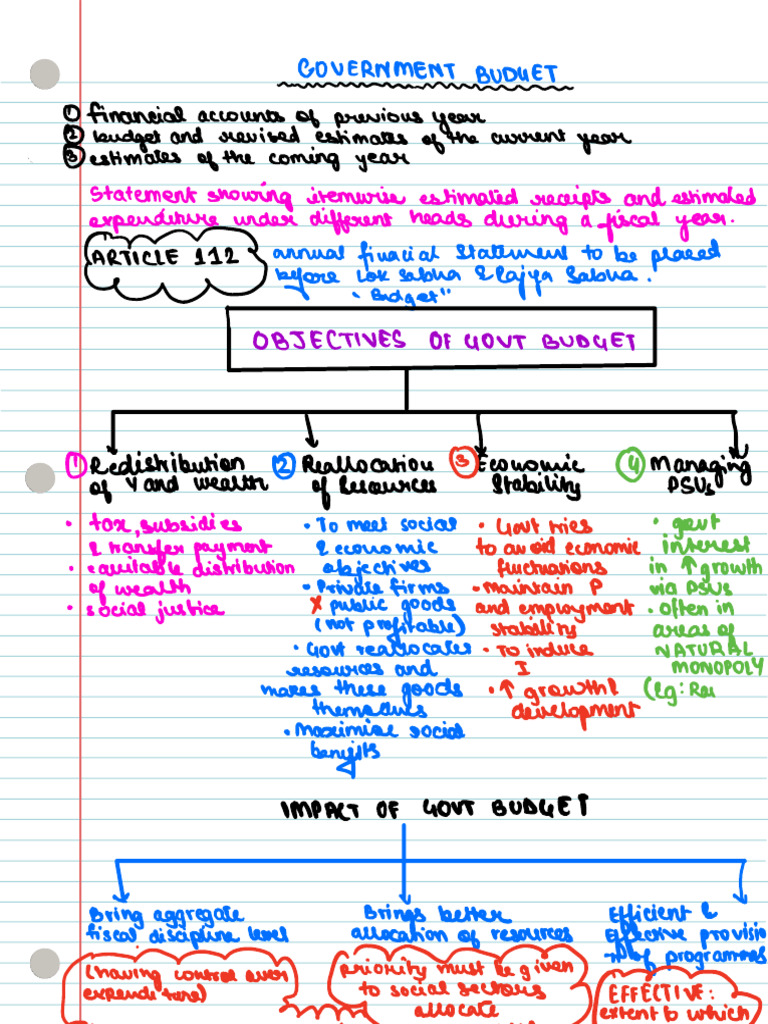 GOVERNMENT BUDGET
① financial accounts of previous year
② budget and revised estimates of the current year
③ estimates of the coming year
Statement showing itemwise estimated receipts and estimated
expenditure under different heads during a fiscal year.
ARTICLE 112
annual finacial statement to be placed
before Lok Sabha & Rajya Sabha.
"Budget"
OBJECTIVES OF GOVT BUDGET
① Redistribution
of Y and wealth
• tax, subsidies
& transfer payment
• equitable distribution
of wealth
• social justice
② Reallocation
of Resources
• To meet social
& economic
objectives
• Private firms
X public goods
(not profitable)
• Govt reallocates
resources and
makes these goods
themselves
• Maximise social
benefits
③ Economic
Stability
• Govt tries
to avoid economic
fluctuations
• Maintain P
and employment
stability
• To induce
I
• ↑ growth &
development
④ Managing
PSUs
• govt
interest
in ↑ growth
via PSUs
• often in
areas of
NATURAL
MONOPOLY
(Eg:
IMPACT OF GOVT BUDGET
Bring aggregate
fiscal discipline level
(having control over
expenditure)
Brings better
allocation of resources
priority must be given
to social sectors
allocate
Efficient &
Effective provisio
of programmes
EFFECTIVE:
extent to which